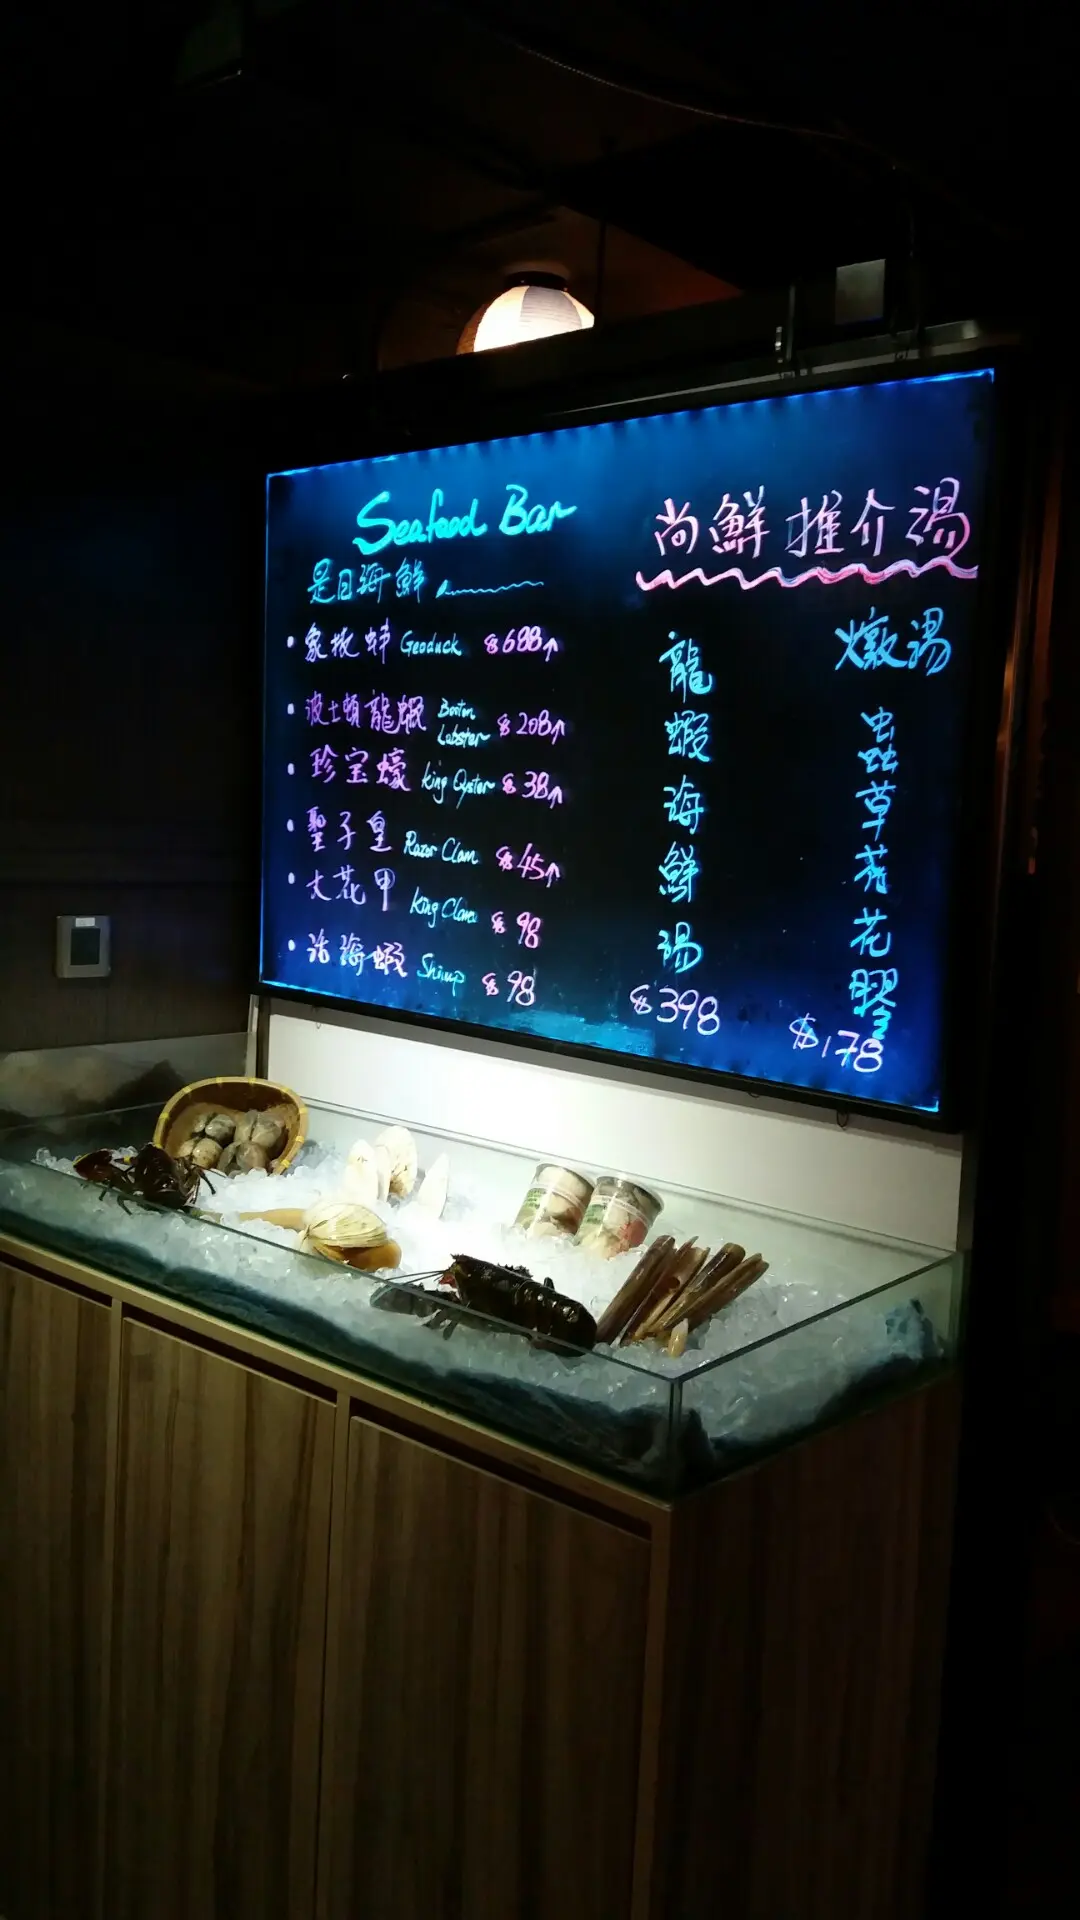 Seafood Bar
是日海鮮
• 象拔蚌 Geoduck $688↑
• 波士頓龍蝦 Boston Lobster $208↑
• 珍宝蠔 King Oyster $38↑
• 聖子皇 Razor Clam $45↑
• 大花甲 King Clam $98
• 活海蝦 Shrimp $98
尚鮮推介湯
龍蝦海鮮湯
$398
燉湯
虫草花膠
$178